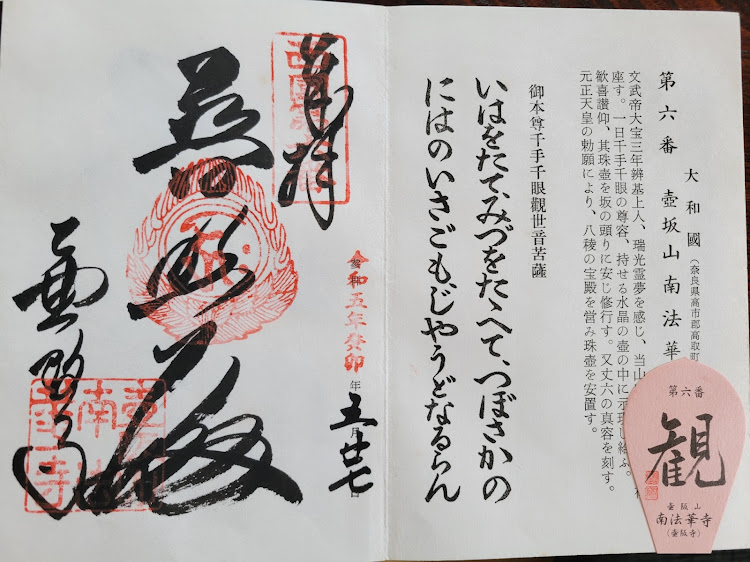 大和國（奈良県高市郡高取町
第六番　壺坂山南法華
文武帝大宝三年辨基上人、瑞光霊夢を感じ、当山
座す。一日千手千眼の尊容、持せる水晶の壺の中に示現し給ふ。
歓喜讃仰、其珠壺を坂の頭りに安じ修行す。又丈六の真容を刻す。
元正天皇の勅願により、八稜の宝殿を営み珠壺を安置す。
御本尊千手千眼觀世音菩薩
いはをたて、みづをたゝへて、つぼさかの
にはのいさごも、じやうどなるらん
第六番
観
壺阪山
南法華寺
(壺阪寺)
奉拝
令和五年癸卯年五月廿七日
普照殿